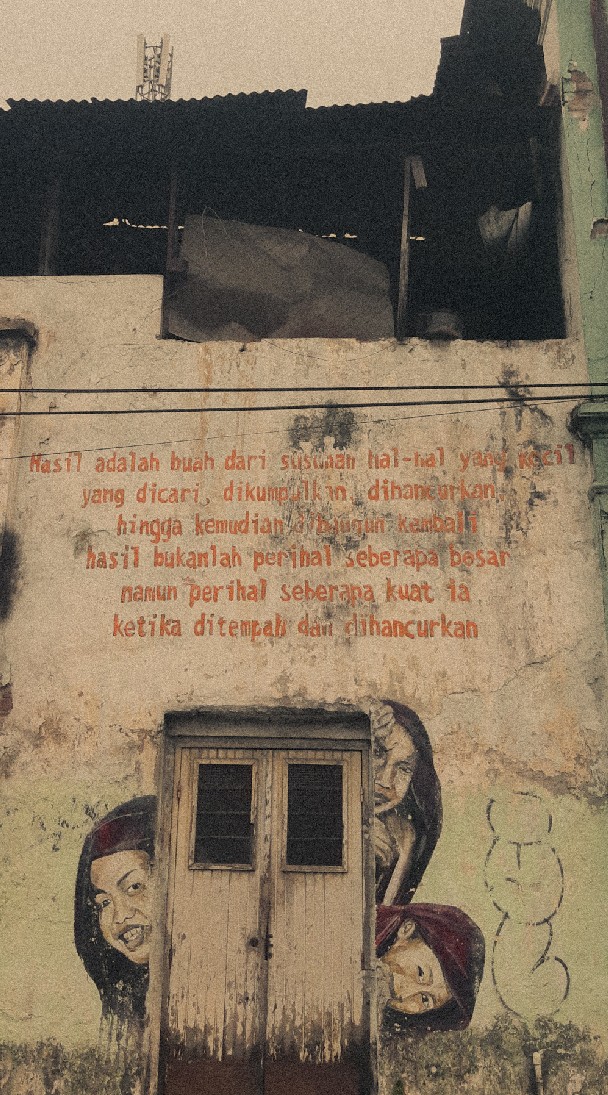 Hasil adalah buah dari susunan hal-hal yang kecil
yang dicari, dikumpulkan, dihancurkan,
hingga kemudian dibangun kembali
hasil bukanlah perihal seberapa besar
namun perihal seberapa kuat ia
ketika ditempah dan dihancurkan